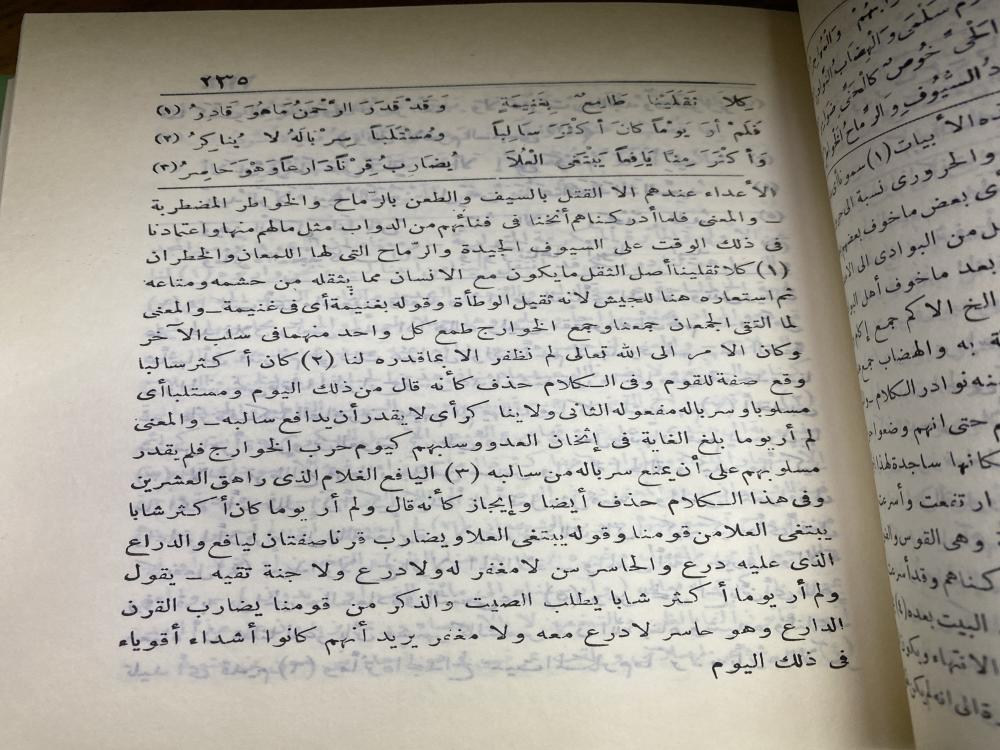 ٢٣٥
كِلَا ثَقَلَيْنَا طَامِعٌ بِغَنِيمَةٍ وَقَدْ قَدَرَ الرَّحْمَنُ مَاهُوَ قَادِرُ (١)
فَلَمْ أَرَ يَوْمًا كَانَ أَكْثَرَ سَالِبًا وَمُسْتَلَبًا سِرْبَالَهُ لَا يُنَاكِرُ (٢)
وَأَكْثَرَ مِنَّا يَافِعًا يَبْتَغِى الْعُلَا يُضَارِبُ قِرْنًا دَارِعًا وَهْوَ حَاسِرُ (٣)
الأعداء عندهم الا القتل بالسيف والطعن بالرّماح والخواطر المضطربة
والمعنى فلما أدركناهم أنخنا فى فنائهم من الدواب مثل مالهم منها واعتمادنا
فى ذلك الوقت على السيوف الجيدة والرّماح التى لها اللمعان والخطران
(١) كلا ثقلينا أصل الثقل ما يكون مع الانسان مما يثقله من حشمه ومتاعه
ثم استعاره هنا للجيش لأنه ثقيل الوطأة وقوله بغنيمة أى فى غنيمة ــ والمعنى
لما التقى الجمعان جمعنا وجمع الخوارج طمع كل واحد منهما فى سلب الآخر
وكان الامر الى الله تعالى لم نظفر الا بما قدره لنا (٢) كان أكثر سالبا
وقع صفة للقوم وفى الكلام حذف كأنه قال من ذلك اليوم ومستلبا أى
مسلوبا وسرباله مفعوله الثانى ولا ينا كر أى لا يقدر أن يدافع سالبه ــ والمعنى
لم أر يوما بلغ الغاية فى إثخان العدو وسلبهم كيوم حرب الخوارج فلم يقدر
مسلوبهم على أن يمنع سرباله من سالبه (٣) اليافع الغلام الذى راهق العشرين
وفى هذا الكلام حذف أيضا وإيجاز كأنه قال ولم أر يوما كان أكثر شابا
يبتغى العلا من قومنا وقوله يبتغى العلا ويضارب قرنا صفتان ليافع والدراع
الذى عليه درع والحاسر من لا مغفر له ولا درع ولا جنة تقيه ــ يقول
ولم أر يوما أكثر شابا يطلب الصيت والذكر من قومنا يضارب القرن
الدارع وهو حاسر لا درع معه ولا مغفر يريد أنهم كانوا أشداء أقوياء
فى ذلك اليوم